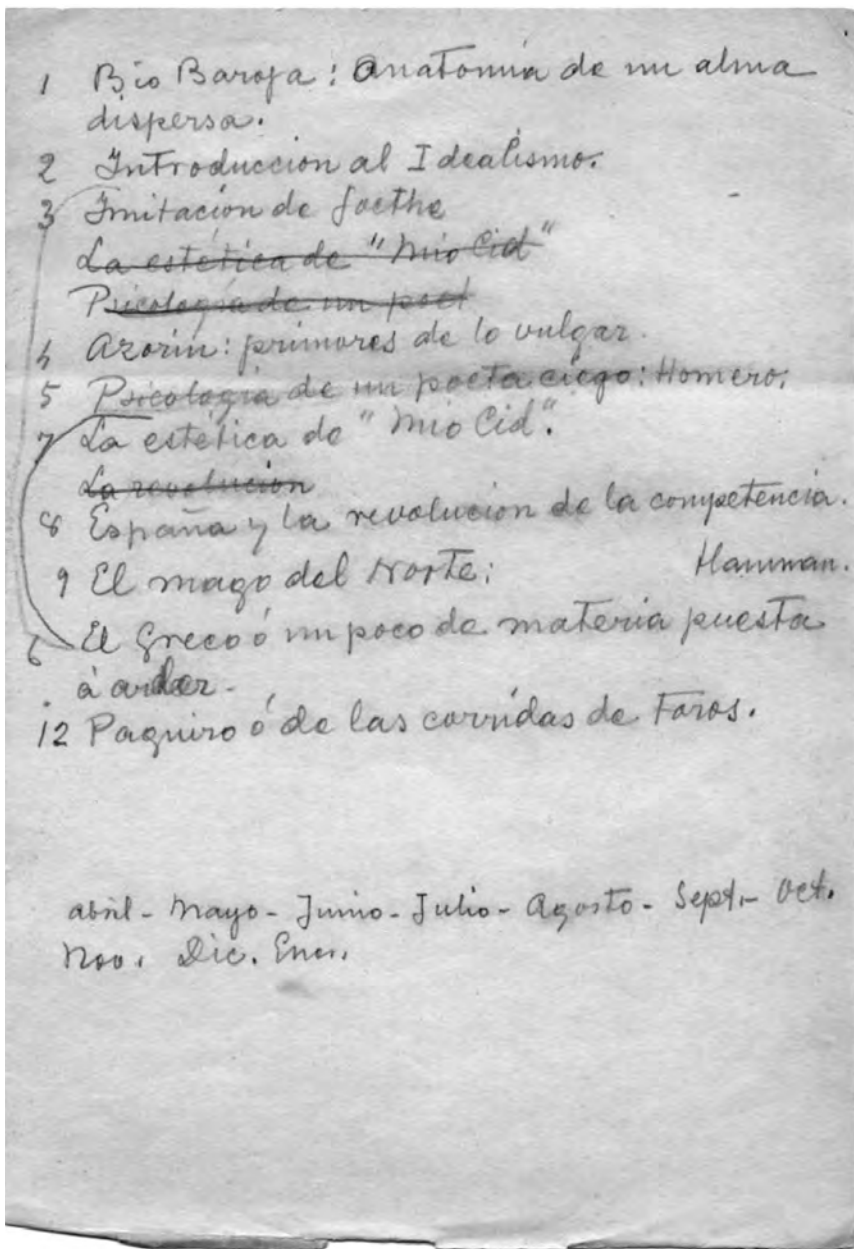 1 Pío Baroja: Anatomía de un alma
dispersa.
2 Introducción al Idealismo.
3 Imitación de Goethe
La estética de "Mio Cid"
Psicología de un poet
4 Azorín: primores de lo vulgar.
5 Psicología de un poeta ciego: Homero.
7 La estética de "Mio Cid".
La revolución
8 España y la revolución de la competencia.
9 El mago del Norte: Hamman.
6 El Greco ó un poco de materia puesta
á arder.
12 Paquiro ó de las corridas de Toros.
Abril - Mayo - Junio - Julio - Agosto - Sept. - Oct.
Nov. Dic. Ener.